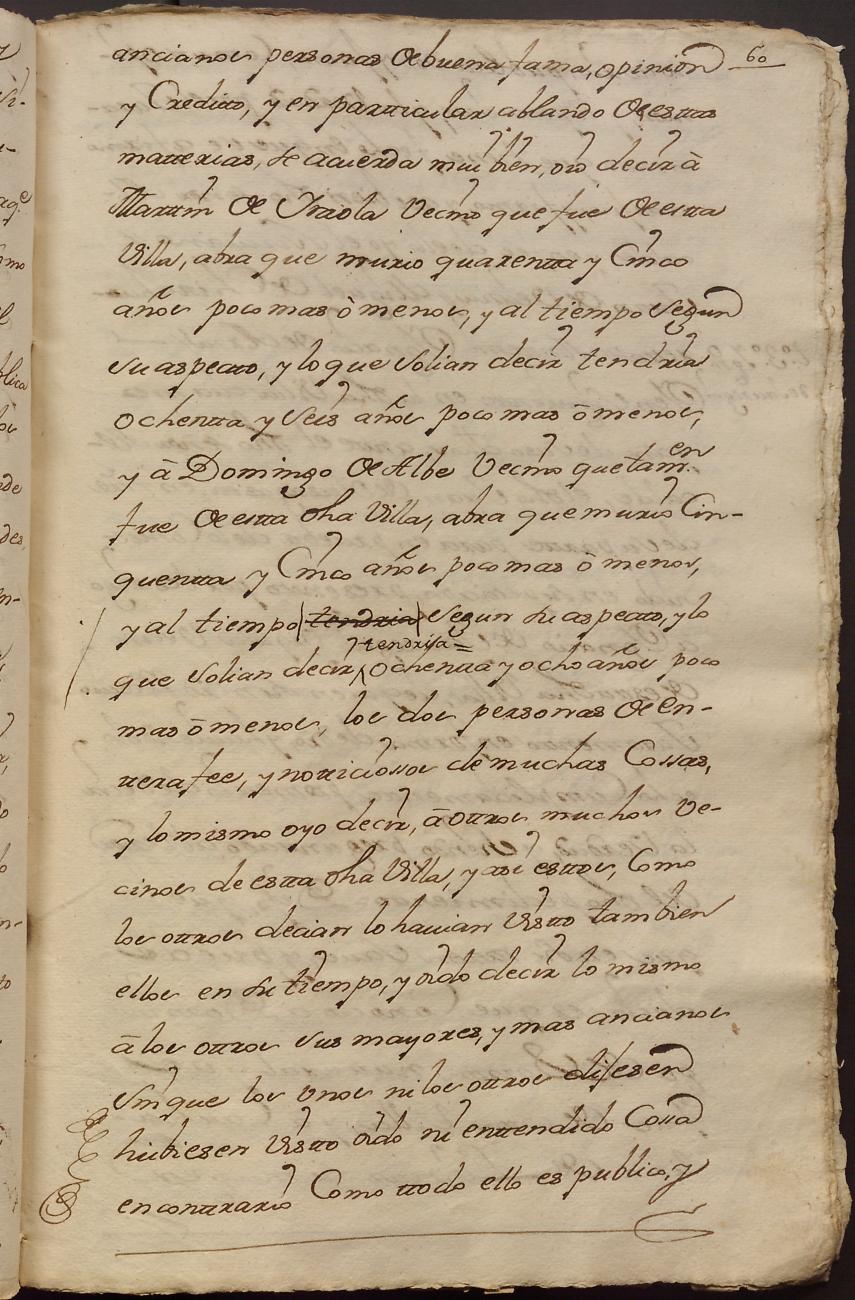 60
ancianos personas de buena fama, opinion
y Creditto, y en partticular ablando de esttas
matterias, se acuerda mui bien, oio decir â
Marttin de Yraola Vecino que fue de estta
Villa, abra que murio quarentta y Cinco
años poco mas ò menos, y al tiempo segun
su aspectto, y lo que solian decir tendria
ochentta y Seis años poco mas ô menos,
y â Domingo de Albe Vecino que tamen
fue de estta dha Villa, abra que murio Cin-
quentta y Cinco años poco mas ò menos,
y al tiempo tendria segun su aspectto, y lo
tendria
que solian decir, ochentta y ocho años poco
mas ô menos, los dos personas de en-
ttera fee, y notticiossos de muchas Cossas,
y lo mismo oyo decir, â ottros muchos Ve-
cinos de estta dha Villa, y asi esttos, Como
los ottros decian lo havian Vistto tambien
ellos en su tiempo, y oido decir lo mismo
â los ottros sus mayores, y mas ancianos
sin que los unos ni los ottros dijesen
hubiesen Vistto oido ni enttendido Cossa
en conttrario Como ttodo ello es publico, y